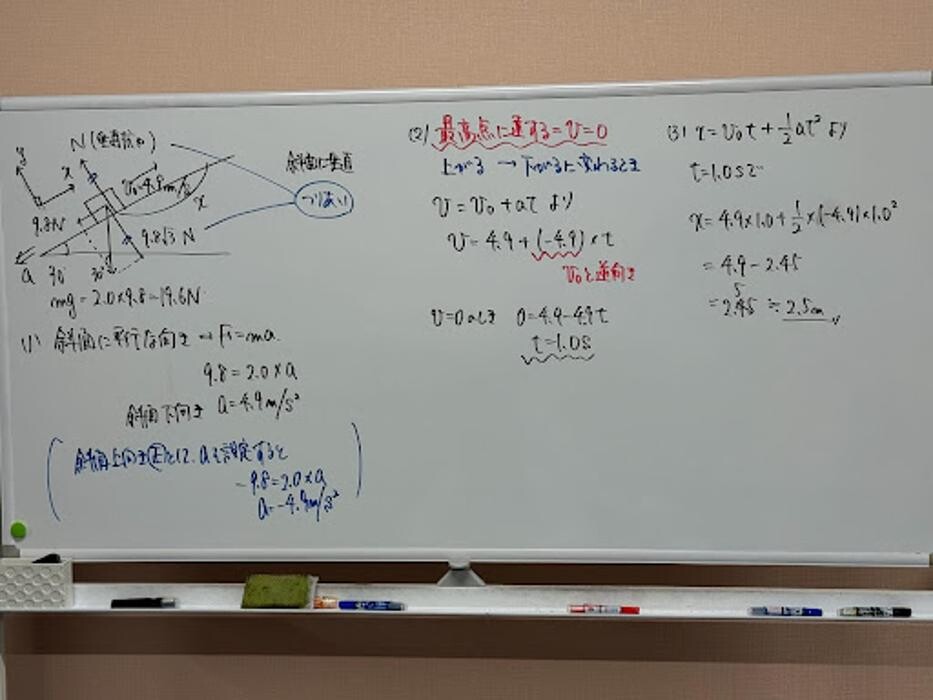 y
x
N(垂直抗力)
V₀=4.9m/s
x
9.8N
9.8√3 N
a
30°
30°
斜面に垂直
つりあい
mg=2.0×9.8=19.6N
(1) 斜面に平行な向き → F=ma
9.8=2.0×a
斜面下向き a=4.9m/s²
斜面上向き正として、aを設定すると
-9.8=2.0×a
a=-4.9m/s²
(2) 最高点に達する=v=0
上がる → 下がるに変わるとき
v=v₀+at より
v=4.9+(-4.9)×t
v₀と逆向き
v=0のとき 0=4.9-4.9t
t=1.0s
(3) x=v₀t+½at² より
t=1.0sで
x=4.9×1.0+½×(-4.9)×1.0²
=4.9-2.45
5
=2.45≒2.5m